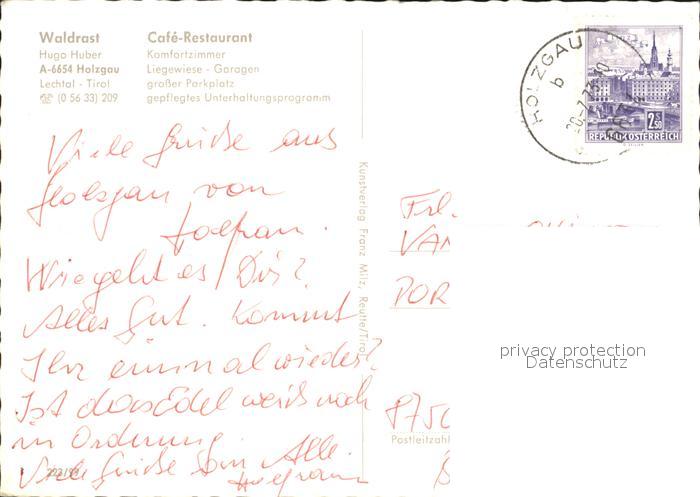 Waldrast
Hugo Huber
A-6654 Holzgau
Lechtal - Tirol
☎ (0 56 33) 209
Café-Restaurant
Komfortzimmer
Liegewiese - Garagen
großer Parkplatz
gepflegtes Unterhaltungsprogramm
HOLZGAU
b
2.50
REPUBLIK ÖSTERREICH
Viele Grüße aus
Holzgau von
Wolfram.
Wie geht es Dir?
Alles Gut. Kommt
Ihr einmal wieder?
Ist das Edelweiß noch
in Ordnung.
Viele Grüße an Alle.
Wolfram
Kunstverlag Franz Milz, Reutte/Tirol
Frl.
VAN
POR
875
Postleitzahl
privacy protection
Datenschutz